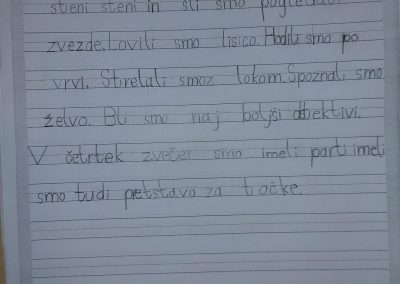 steni steni in šli smo pogledat
zvezde. Lovili smo lisico. Hodili smo po
vrvi. Streljali smoz lokom. Spoznali smo
želvo. Bli smo naj boljši dtektivi.
V četrtek zvečer smo imeli parti imeli
smo tudi pretstavo za točke.